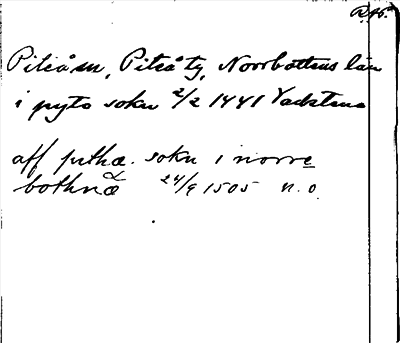 R.46.
Piteå sn, Piteå ty, Norrbottens län
i pyto sokn 2/2 1441 Vadstena
aff pitha. sokn i norre
bothnæ 24/9 1505 n.o.